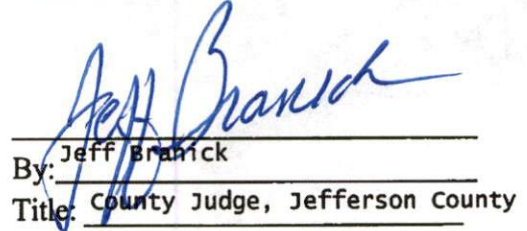 Jeff Branick
By: Jeff Branick
Title: County Judge, Jefferson County